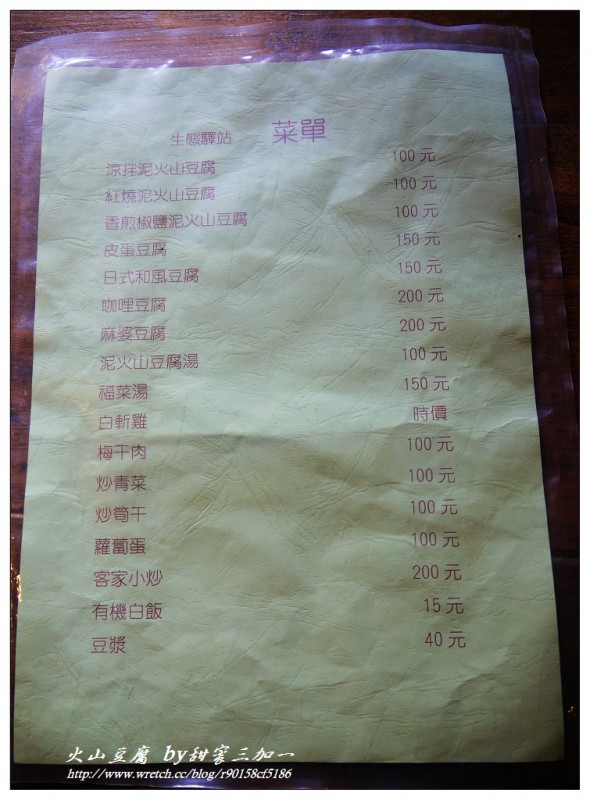 生態驛站 菜單
涼拌泥火山豆腐 100 元
紅燒泥火山豆腐 100 元
香煎椒鹽泥火山豆腐 100 元
皮蛋豆腐 150 元
日式和風豆腐 150 元
咖哩豆腐 200 元
麻婆豆腐 200 元
泥火山豆腐湯 100 元
福菜湯 150 元
白斬雞 時價
梅干肉 100 元
炒青菜 100 元
炒筍干 100 元
蘿蔔蛋 100 元
客家小炒 200 元
有機白飯 15 元
豆漿 40 元
火山豆腐 by甜蜜三加一
http://www.wretch.cc/blog/r90158cf5186